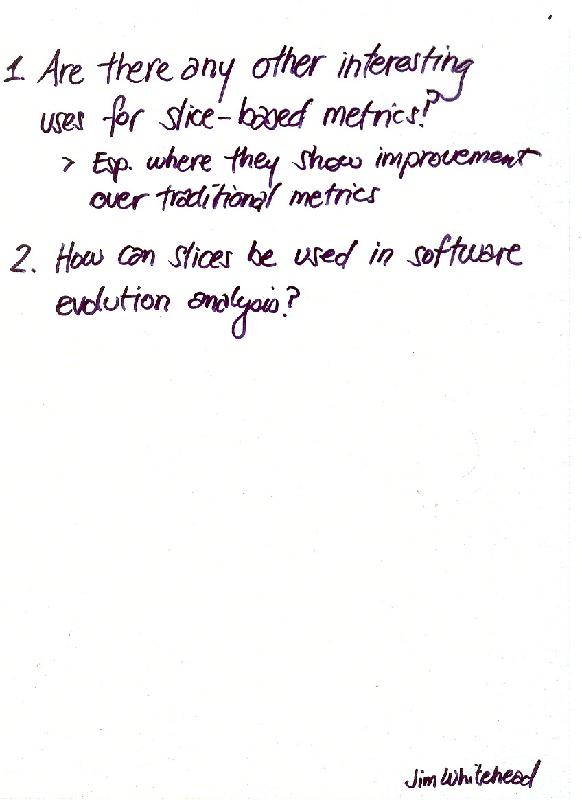 1 Are there any other interesting
uses for slice-based metrics?
> Esp. where they show improvement
over traditional metrics
2. How can slices be used in software
evolution analysis?
Jim Whitehead